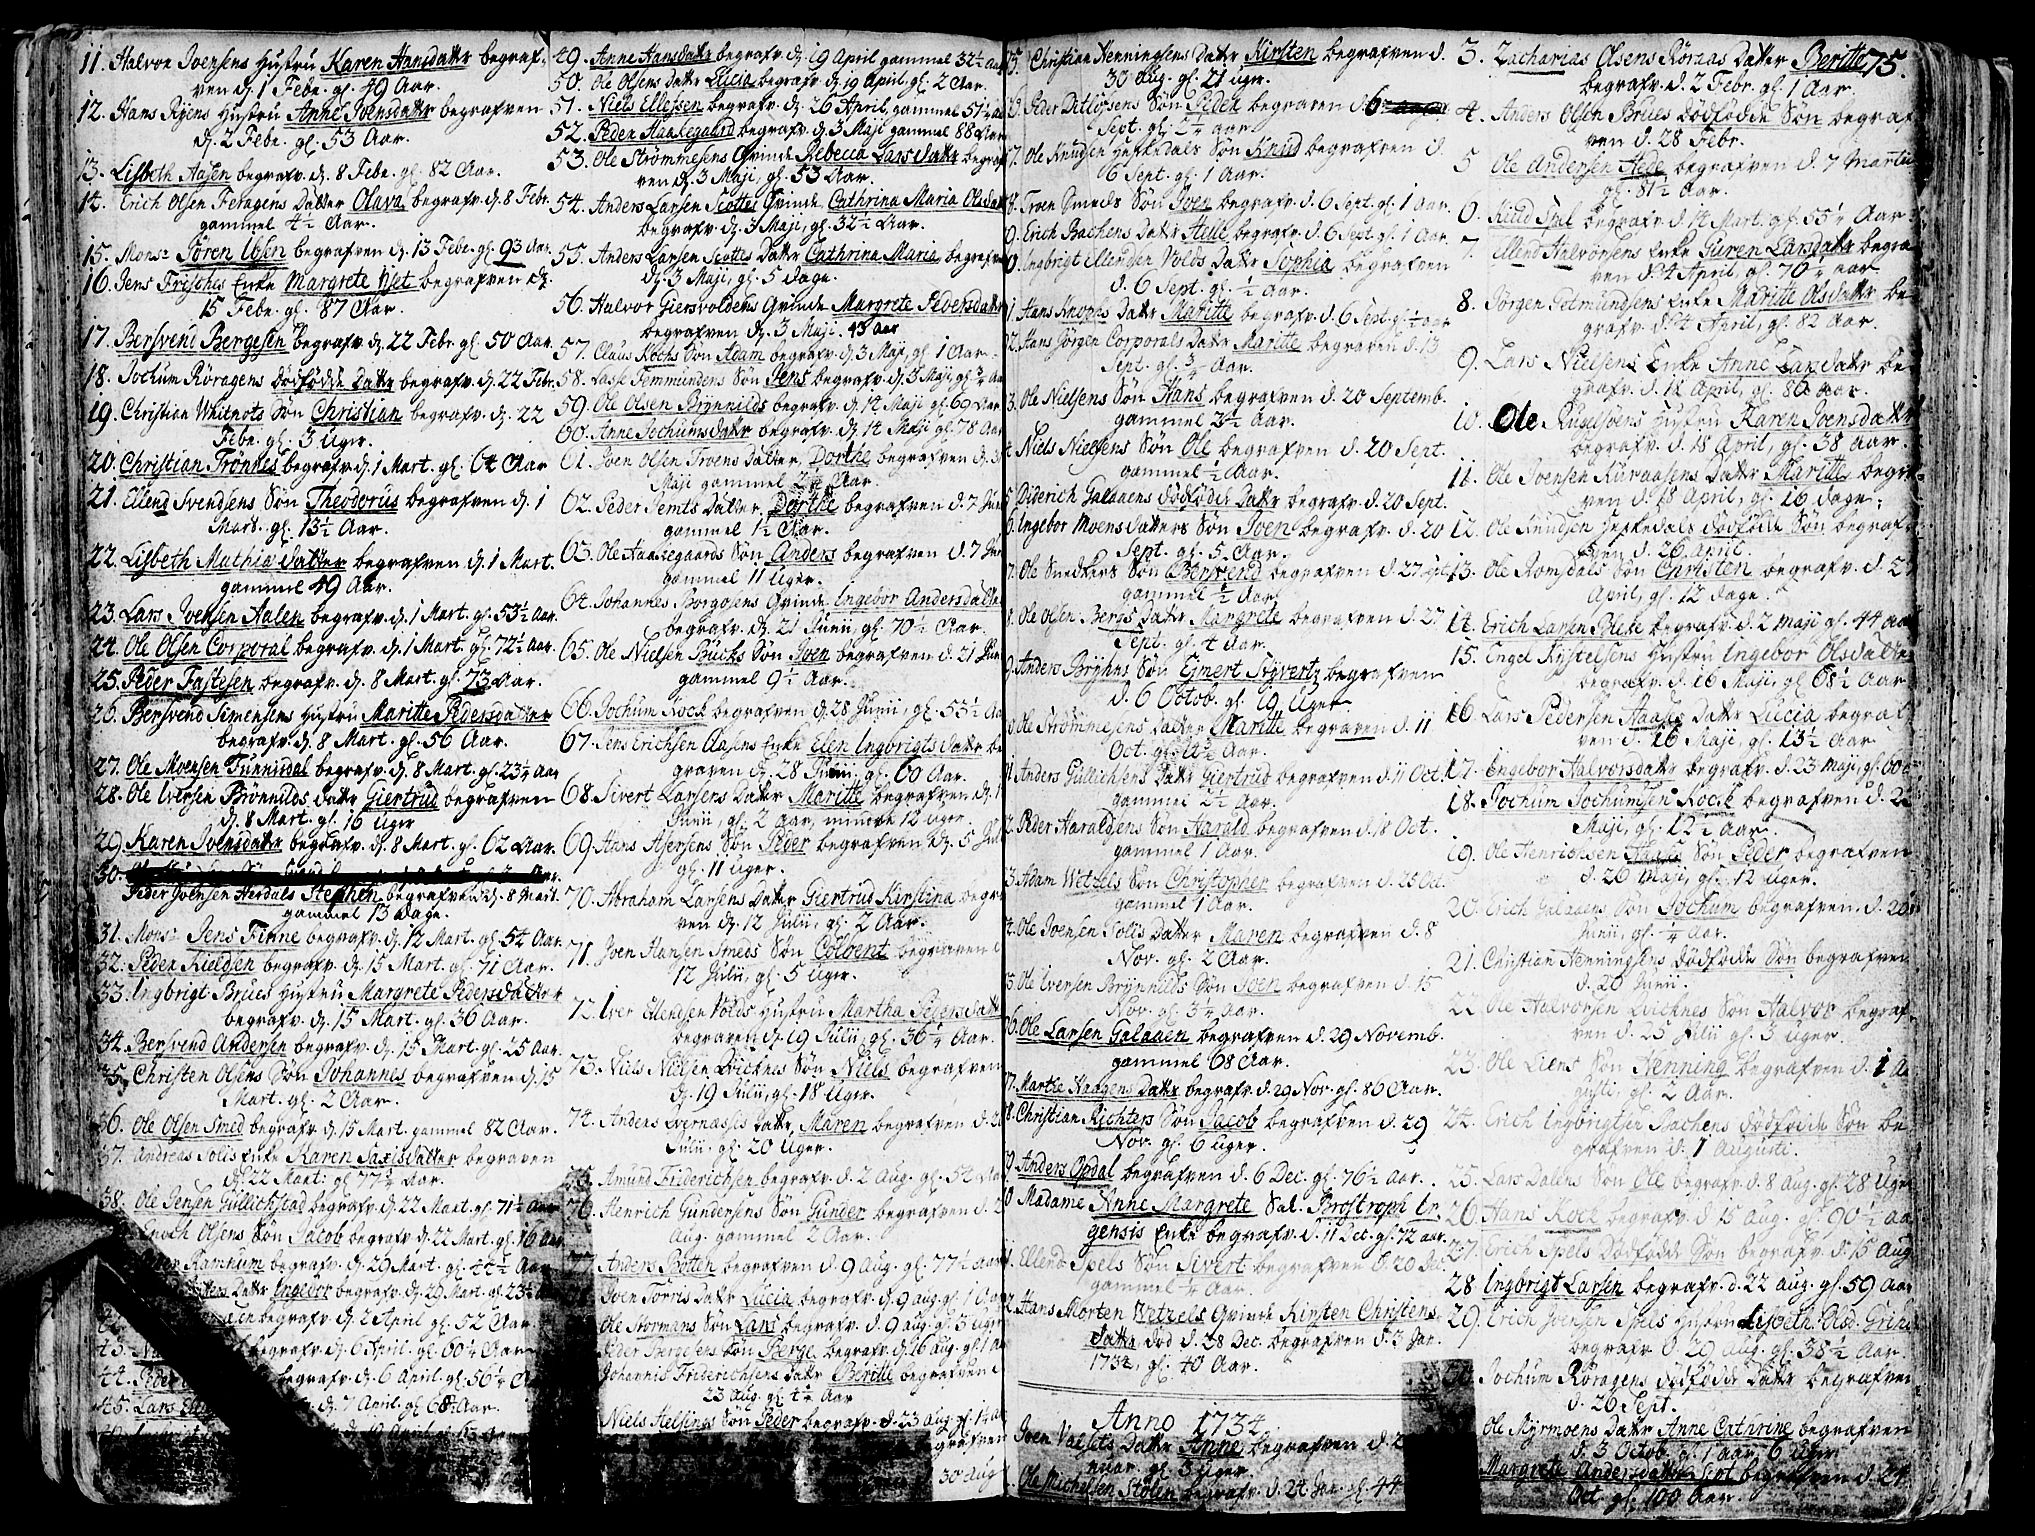 11. Halvor Ivensens Hustru Karen Hansdattr begraf-
ven dj. 1 Febr. gl. 49 Aar.
12. Hans Ryens Hustru Anne Ivensdattr begrafven
dj. 2 Febr. gl. 53 Aar.
13. Lisbeth Aasen begrafv. dj. 8 Febr. gl. 82 Aar.
14. Erich Olsen Feragens Datter Olava begrafv. dj. 8 Febr.
gammel 4½ Aar.
15. Monsr Sören Ibsen begrafven dj. 13 Febr. gl. 93 Aar.
16. Jens Frisches Enke Margrete begrafven dj.
15 Febr. gl. 87 Aar.
17. Bersvend Bergesen begrafv. dj. 22 Febr. gl. 50 Aar.
18. Jochum Röragens dödfödde Dattr begrafv. dj. 22 Febr.
19. Christian Whitnots Sön Christian begrafv. dj. 22
Febr. gl. 3 Uger.
20. Christian Trönnes begrafv. dj. 1 Mart. gl. 64 Aar
21. Ellend Svendsens Sön Theodorus begrafven dj. 1
Mart. gl. 13½ Aar.
22. Lisbeth Mathiædatter begrafven dj. 1 Mart.
gammel 49 Aar.
23. Lars Ivensen Aalen begrafv. dj. 1 Mart. gl. 53½ Aar.
24. Ole Olsen Corporal begrafv. dj. 1 Mart. gl. 72½ Aar.
25. Peder Fastesen begrafv. dj. 8 Mart. gl. 73 Aar.
26. Bersvend Simensens Hustru Maritte Pedersdatter
begrafv. dj. 8 Mart. gl. 56 Aar.
27. Ole Moensen Funnisdal begrafv. dj. 8 Mart. gl. 23¼ Aar
28. Ole Iversen Brönnilds Dattr Giertrud begrafven
dj. 8 Mart. gl. 16 Uger
29. Karen Ivensdattr begrafv. dj. 8 Mart. gl. 62 Aar.
30.
Peder Joensen Herdals Stephen begrafven dj. 8 Mart.
gammel 13 Dage.
31. Monsr Jens Finne begrafv. dj. 12 Mart. gl. 54 Aar.
32. Peder Kieldsen begrafv. dj. 15 Mart. gl. 71 Aar.
33. Ingbrigt Brues Hustru Margrete Pedersdatter
begrafv. dj. 15 Mart. gl. 36 Aar.
34. Bersvend Andersen begrafv. dj. 15 Mart. gl. 25 Aar.
35. Christen Olsens Sön Johannes begrafven dj. 15
Mart. gl. 2 Aar.
36. Ole Olsen Smed begrafv. dj. 15 Mart. gammel 82 Aar.
37. Andreas Solis Enke Karen Saxisdatter begraven
dj. 22 Mart. gl. 77½ Aar.
38. Ole Jensen Gullichstad begrafv. dj. 22 Mart. gl. 71½ Aar
Enoch Olsens Sön Jacob begrafv. dj. 22 Mart. gl. 16 Aar
Ramhum begrafv. dj. 29 Mart. gl. 44½ Aar.
Dattr Ingebor begrafv. dj. 29 Mart. gl. 23½
begrafv. dj. 2 April gl. 52 Aar.
43. begrafv. dj. 6 April. gl. 60½ Aar
44. Peder begrafv. dj. 6 April. gl. 56½
45. Lars dj. 7 April. gl. 68½ Aar.
49. Anne Hansdattr begrafv. dj. 19 April gammel 32½ Aar
50. Ole Olsens Dattr Lucia begrafv. dj. 19 April. gl. 2 Aar.
51. Niels Ellefsen begrafv. dj. 26 April, gammel 57½
52. Peder Aaakegaard begrafv. dj. 3 Maji gammel 88 Aar
53. Ole Strömmesens Qvinde Rebecca Larsdattr begraf
ven dj. 3 Maji, gl. 53 Aar.
54. Anders Larsen Scottes Qvinde Cathrina Maria Olsdatt
begrafv. dj. 3 Maji, gl. 32½ Aar.
55. Anders Larsen Scottes Dattr Cathrina Maria begrafven
dj. 3 Maji, gl. 5 Dage.
56. Halvor Giersvoldens Qvinde Margrete Pedersdatter
begrafven dj. 3 Maji. 43 Aar
57. Claus Koths Sön Adam begrafv. dj. 3 Maji, gl. 1 Aar.
58. Lasse Femmundens Sön Jens begrafv. dj. 3 Maji, gl. ¾
59. Ole Olsen Brynnilds begrafv. dj. 14 Maji gl. 69 Aar
60. Anne Jochumsdattr begrafv. dj. 14 Maji gl. 78 Aar
61. Joen Olsen Troens Datter Dorthe begrafven d.
Maji gammel 2½ Aar.
62. Peder Jemts Datter Dorthe begrafven d. 7 Jun
gammel 1½ Aar.
63. Ole Aaakegaards Sön Anders begrafven d. 7 Jun
gammel 11 Uger.
64. Johannes Borgosens Qvinde Ingebor Andersdatter
begrafv. dj. 21 Junii, gl. 70½ Aar.
65. Ole Nielsen Bucks Sön Joen begrafven d. 21 Jun
gammel 9½ Aar.
66. Jochum Kock begrafven d. 28 Junii, gl. 53½
67. Jens Erichsen Aasens Enke Elen Ingbrigtsdatter be
graven dj. 28 Junii gl. 60 Aar.
68. Sivert Larsens Datter Maritte begrafven dj.
Junii, gl. 2 Aar, mindre 12 Uger.
69. Hans Ifversens Sön Peder begrafven dj. 5 Jul
gl. 11 Uger.
70. Abraham Larsens Dattr Giertrud Kirstina begr
ven dj. 12 Julii, gl. 2 Aar.
71. Joen Hansen Smeds Sön Colbent begraven
12 Julii, gl. 5 Uger.
72. Iver Ellendsen Volds Hustru Martha Pedersdatt
begraven dj. 19 Julii, gl. 36¼ Aar.
73. Niels Nielsen Qvicknes Sön Niels begrafven
dj. 19 Julii, gl. 18 Uger.
74. Anders Evernasses Dattr Maren begrafven d.
Julii gl. 20 Uger.
75. Amund Friderichsen begrafv. d. 2 Aug. gl. 54 Aar
76. Henrich Gundersens Sön Gunder begrafven d.
Aug. gammel 2 Aar.
77. Anders Botten begrafven d. 9 Aug. gl. 77½ Aar
Joen Torris Dattr Lucia begrafv. d. 9 aug. gl. 1 Aar
Ole Normans Sön Lars begrafv. d. 9 aug. gl. 3 Uger
Peder Bergesens Sön Berge begrafv. d. 16 Aug. gl. 1
Johannis Friderichsens Dattr Beritte begrafven
23 aug. gl. 4½ Aar
Niels Helsings Sön Peder begrafv. d. 23 aug. gl. 1¼
begrafven
30 aug
Christian Henningsens Dattr Kirsten begrafven d.
30 Aug. gl. 21 Uger.
Peder Ditlofsens Sön Peder begraven d. 6
Sept. gl. 2¼ aar.
Ole Knudsen Hessedals Sön Knud begrafven d.
6 Sept. gl. 1 Aar.
Troen Smeds Sön Joen begrafv. d. 6 Sept. gl. 1 Aar.
Erich Bachens Dattr Helle begrafv. d. 6 Sept. gl. 1 Aar.
Ingbrigt Ellendsen Volds Dattr Sophia begrafven
d. 6 Sept. gl. ½ Aar.
Hans Knophs Dattr Maritte begrafv. d. 6 Sept. gl. ¼ aar
Hans Jörgen Corporals Dattr Maritte begraven d. 13
Sept. gl. ¾ Aar.
Ole Nielsens Sön Hans begrafven d. 20 Septemb.
gammel 2½ Aar.
Niels Nielsens Sön Ole begrafven d. 20 Sept.
gammel ½ Aar.
Diderich Galaaens dödfödde Dattr begrafv. d. 20 Sept.
Ingebor Moensdatters Sön Joen begrafv. d. 20
Sept. gl. 5. Aar.
Ole Snedkers Sön Bersvend begrafven d. 27 Sept.
gammel ½ Aar.
Ole Olsen Bergs Dattr Margrete begrafven d. 27
Sept. gl. 4 Aar.
Anders Bryhns Sön Ejmert Sigvertz begrafven
d. 6 Octob. gl. 19 Uger
Ole Strömmesens Datter Maritte begraven d. 11
Oct. gl. 4½ Aar.
Anders Gullichsens Dattr Giertrud begrafven d. 11 Oct.
gammel 2½ Aar.
Peder Haraldsens Sön Harald begrafven d. 18 Oct.
gammel 1 Aar.
Adam Wetzels Sön Christopher begrafven d. 25 Oct.
gammel 1 Aar.
Ole Joensen Solis Datter Maren begrafven d. 8
Nov. gl. 2 Aar.
Ole Iversen Brynnilds Sön Joen begrafven d. 15
Nov. gl. 3¼ Aar.
96. Ole Larsen Galaaen begrafven d. 29 Novemb.
gammel 68 Aar.
Marthe Haagensdattr begrafv. d. 29 Nov. gl. 86 Aar.
Christian Richters Sön Jacob begrafven d. 29
Nov. gl. 6 Uger.
Anders Opdal begrafven d. 6 Dec. gl. 76½ Aar.
Madame Anne Margrete Sal. Brostroph Ir-
gensis Enke begrafv. d. 11 Dec. gl. 72 aar.
Ellend Spels Sön Sivert begrafven d. 20 Dec.
gammel ¼ Aar.
Hans Morten Wetzels Qvinde Kirsten Christens-
datter död d. 28 Dec. begrafven d. 2 Jan.
1734, gl. 40 Aar.
Anno 1734.
Joen Valsets Dattr Anne begrafven d. 2
nuar. gl. 3 Uger.
Ole Michelsen Stölen begrafv. d. 24 Jan. gl. 44
75.
3. Zacharias Olsens Röraas Datter Beritte
begrafv. d. 2 Febr. gl. 1 Aar.
4. Anders Olsen Brues dödfödde Sön begraf
ven d. 28 Febr.
5 Ole Andersen Hede begrafven d. 7 Martii
gl. 81½ Aar.
6. Knud Spel begrafv. d. 14 Mart. gl. 55¼ Aar
7. Ellend Halvorsens Enke Guren Larsdattr begra
ven d. 4 April, gl. 76¼ aar
8. Jörgen Setmundsens Enke Maritte Olsdattr be-
grafv. d. 4 April, gl. 82 Aar.
9. Lars Nielsens Enke Anne Larsdattr be-
grafv. d. 18 April, gl. 86 Aar.
10. Ole Rugelsiöens Hustru Karen Joensdattr
begrafv. d. 18 April, gl. 38 Aar.
11. Ole Joensen Kuraasens Dattr Maritte begra
ven d. 18 April, gl. 16 Dage.
12. Ole Knudsen Hessedals dödfödde Sön begraf
ven d. 26 April.
13. Ole Romsdals Sön Christen begrafv. d. 2
April, gl. 12 Dage.
14. Erich Larsen Beke begrafv. d. 2 Maji gl. 44 Aar
15. Engel Kystelsens Hustru Ingebor Olsdatter
begrafv. d. 16 Maji, gl. 68½ Aar
16. Lars Pedersen Aaass Dattr Lucia begraf
ven d. 16 Maji, gl. 13½ Aar.
17. Ingebor Halvorsdattr begrafv. d. 23 Maji, gl. 60
18. Jochum Jochumsen Kock begrafven d. 23
Maji, gl. 12½ Aar.
19. Ole Henrichsen Aaals Sön Peder begrafven
d. 26 Maji, gl. 12 Uger.
20. Erich Galaaens Sön Jochum begrafven d. 20
Junii, gl. ¼ Aar.
21. Christian Henningsens dödfödde Sön begrafven
d. 20 Junii.
22 Ole Halvorsen Qvicknes Sön Halvor begraf-
ven d. 25 Julii gl. 3 Uger.
23. Ole Liens Sön Henning begrafven d. 1 Au
gusti, gl. 2 Aar.
24. Erich Ingbrigtsen Bachens dödfödde Sön be-
grafven d. 1 Augusti.
25. Lars Dalens Sön Ole begrafv. d. 8 Aug. gl. 28 Uger
26. Hans Kock begrafv. d. 15 Aug. gl. 90½ Aar
27. Erich Spels Dödfödde Sön begrafv. d. 15 Aug
28 Ingbrigt Larsen begrafv. d. 22 Aug. gl. 59 Aar
29. Erich Joensen Spels Hustru Lisbeth Olsd. Grind
begrafv. d. 29 Aug. gl. 38½ Aar.
30 Jochum Röragens dödfödde Dattr begrafven
d. 26 Sept.
Ole Myrmoens Dattr Anne Cathrine begrafven
d. 3 Octob. gl. 1 Aar 6 Uger
Margrete Andersdatter begrafven d. 24
Oct. gl. 100 Aar.